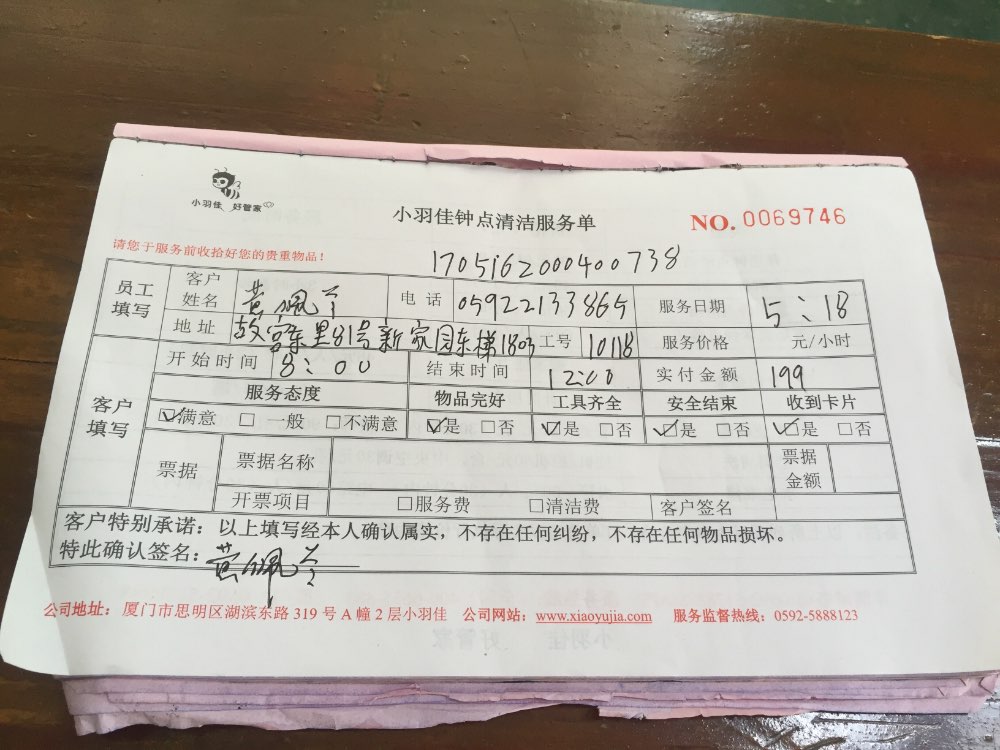 小羽佳 好管家
小羽佳钟点清洁服务单
NO. 0069746
请您于服务前收拾好您的贵重物品！
170516200400738
员工填写 客户姓名 黄佩 电话 05922133865 服务日期 5:18
地址 故宫东里81号新家园东梯1803 工号 10118 服务价格 元/小时
开始时间 8:00 结束时间 12:00 实付金额 199
客户填写 服务态度 物品完好 工具齐全 安全结束 收到卡片
☑满意 □一般 □不满意 ☑是 □否 ☑是 □否 ☑是 □否 ☑是 □否
票据 票据名称 票据金额
开票项目 □服务费 □清洁费 客户签名
客户特别承诺：以上填写经本人确认属实，不存在任何纠纷，不存在任何物品损坏。
特此确认签名：黄佩
公司地址：厦门市思明区湖滨东路 319 号 A 幢 2 层小羽佳 公司网站：www.xiaoyujia.com 服务监督热线：0592-5888123